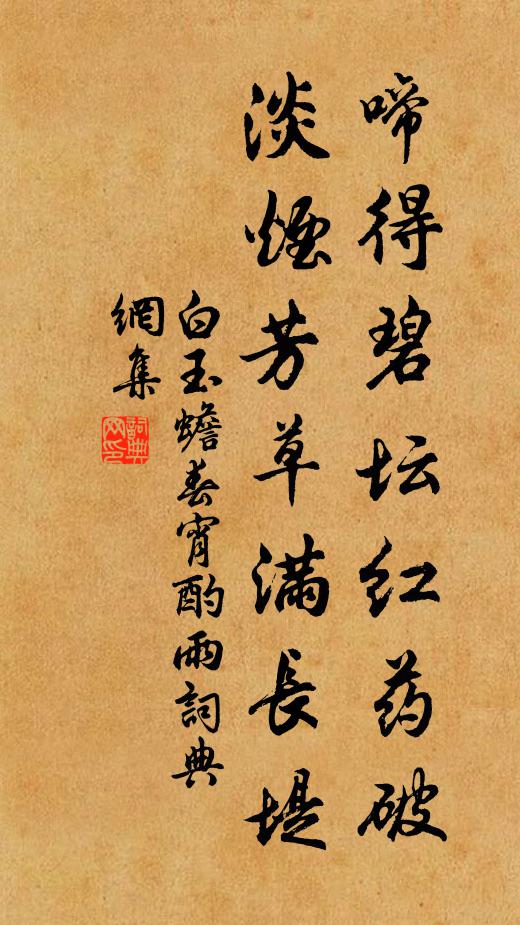 啼得碧坛红药破
淡煙芳草满長堤
白玉蟾春宵酌雨詞典
網集
詞典
网印